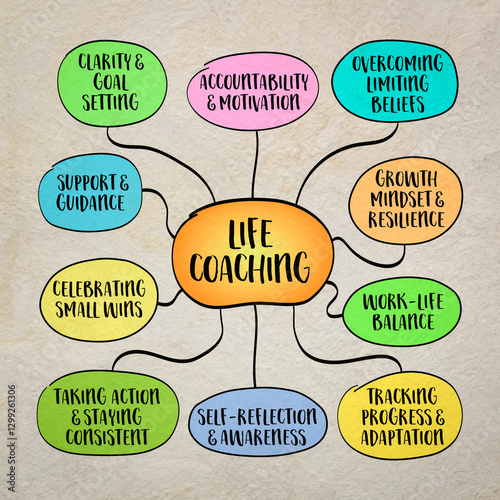 CLARITY &
GOAL
SETTING
ACCOUNTABILITY
& MOTIVATION
OVERCOMING
LIMITING
BELIEFS
SUPPORT &
GUIDANCE
GROWTH
MINDSET &
RESILIENCE
LIFE
COACHING
CELEBRATING
SMALL WINS
WORK-LIFE
BALANCE
TAKING ACTION
& STAYING
CONSISTENT
SELF-REFLECTION
& AWARENESS
TRACKING
PROGRESS &
ADAPTATION
Adobe Stock | #1299261306